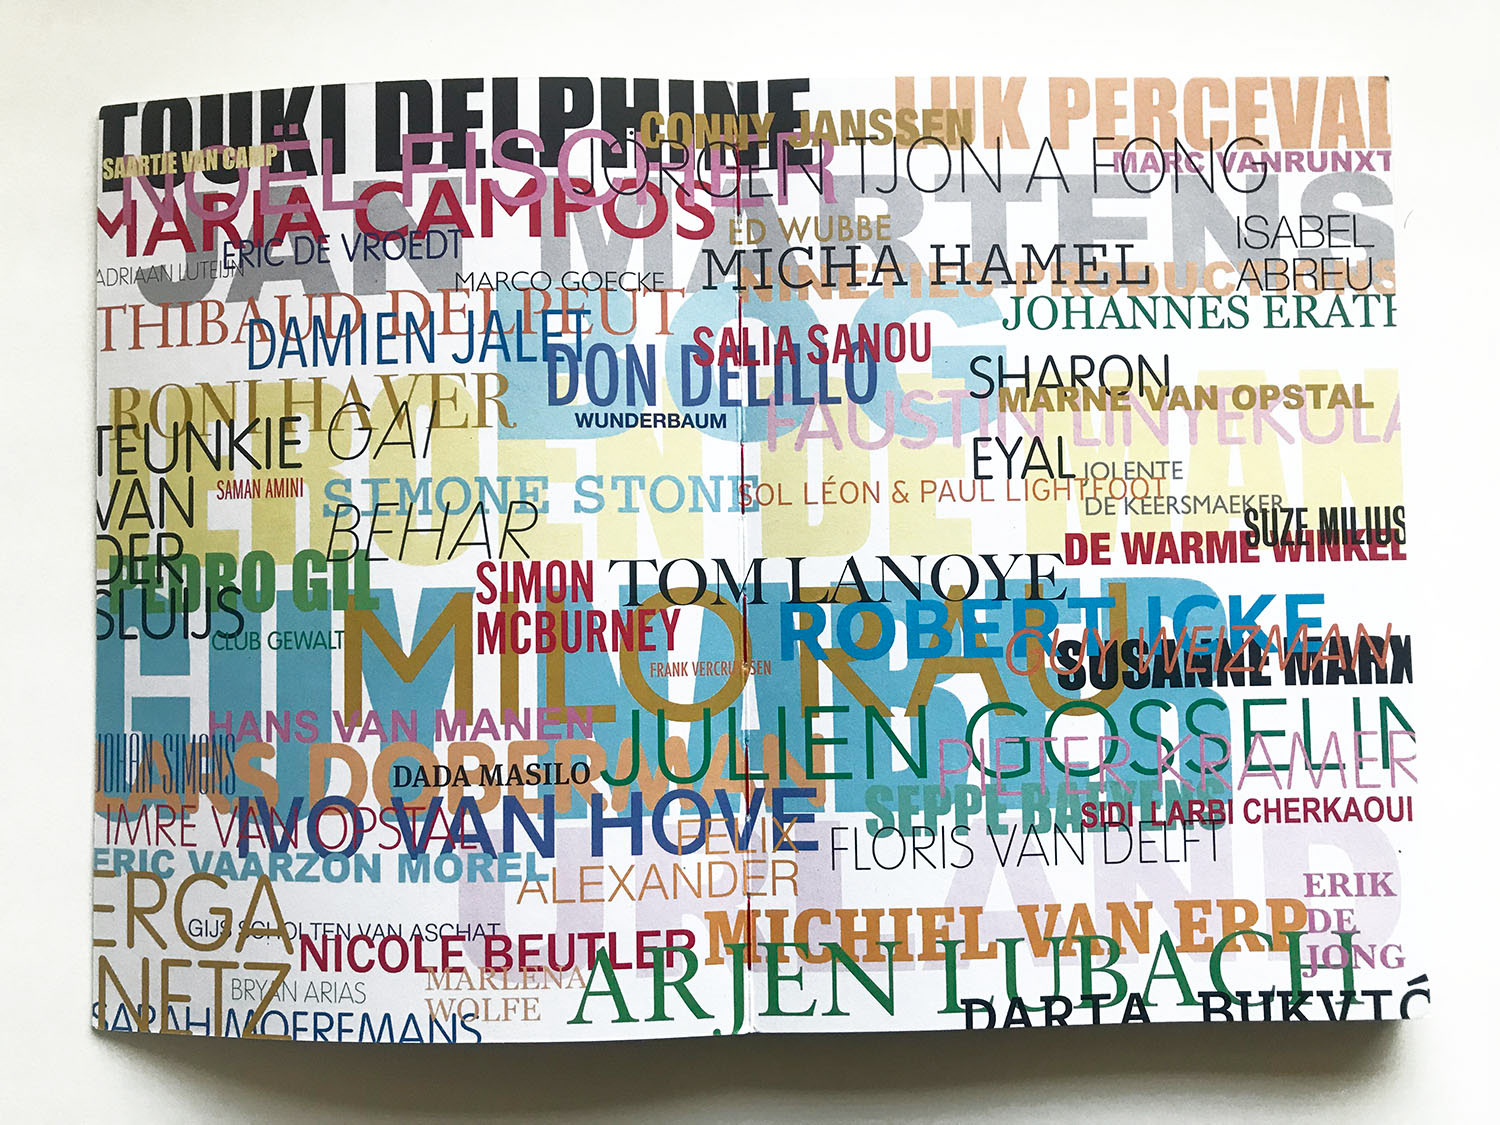 TOUKI DELPHINE
LUK PERCEVAL
CONNY JANSSEN
SAARTJE VAN CAMP
NOËL FISCHER
JÖRGEN TJON A FONG
MARC VANRUNXT
MARIA CAMPOS
JAN MARTENS
ED WUBBE
ISABEL
ABREU
ERIC DE VROEDT
ADRIAAN LUTEIJN
MARCO GOECKE
MICHA HAMEL
NINETIES PRODUCTIONS
THIBAUD DELPEUT
JOHANNES ERATH
DAMIEN JALET
BOG
SALIA SANOU
DON DELILLO
SHARON
EYAL
MARNE VAN OPSTAL
RONI HAVER
WUNDERBAUM
FAUSTIN LINYEKULA
GAI
BEHAR
TEUNKIE
VAN
DER
SLUIJS
JEROEN DE MAN
SAMAN AMINI
SIMONE STONE
SOL LÉON & PAUL LIGHTFOOT
JOLENTE
DE KEERSMAEKER
SUZE MILIUS
DE WARME WINKEL
PEDRO GIL
SIMON
MCBURNEY
TOM LANOYE
ROBERT ICKE
CLUB GEWALT
MILO RAU
GUY WEIZMAN
SUSANNE MARX
HANS VAN MANEN
JULIEN GOSSELIN
JOHAN SIMONS
DOBERMAN
DADA MASILO
PIETER KRAMER
SEPPE BAEYENS
SIDI LARBI CHERKAOUI
IVO VAN HOVE
IMRE VAN OPSTAL
FELIX
ALEXANDER
FLORIS VAN DELFT
URLAND
ERIC VAARZON MOREL
ERGA
NETZ
ERIK
DE
JONG
GIJS SCHOLTEN VAN ASCHAT
NICOLE BEUTLER
MICHIEL VAN ERP
ARJEN LUBACH
BRYAN ARIAS
MARLENA
WOLFE
SARAH MOEREMANS
DARTA BUKVIĆ